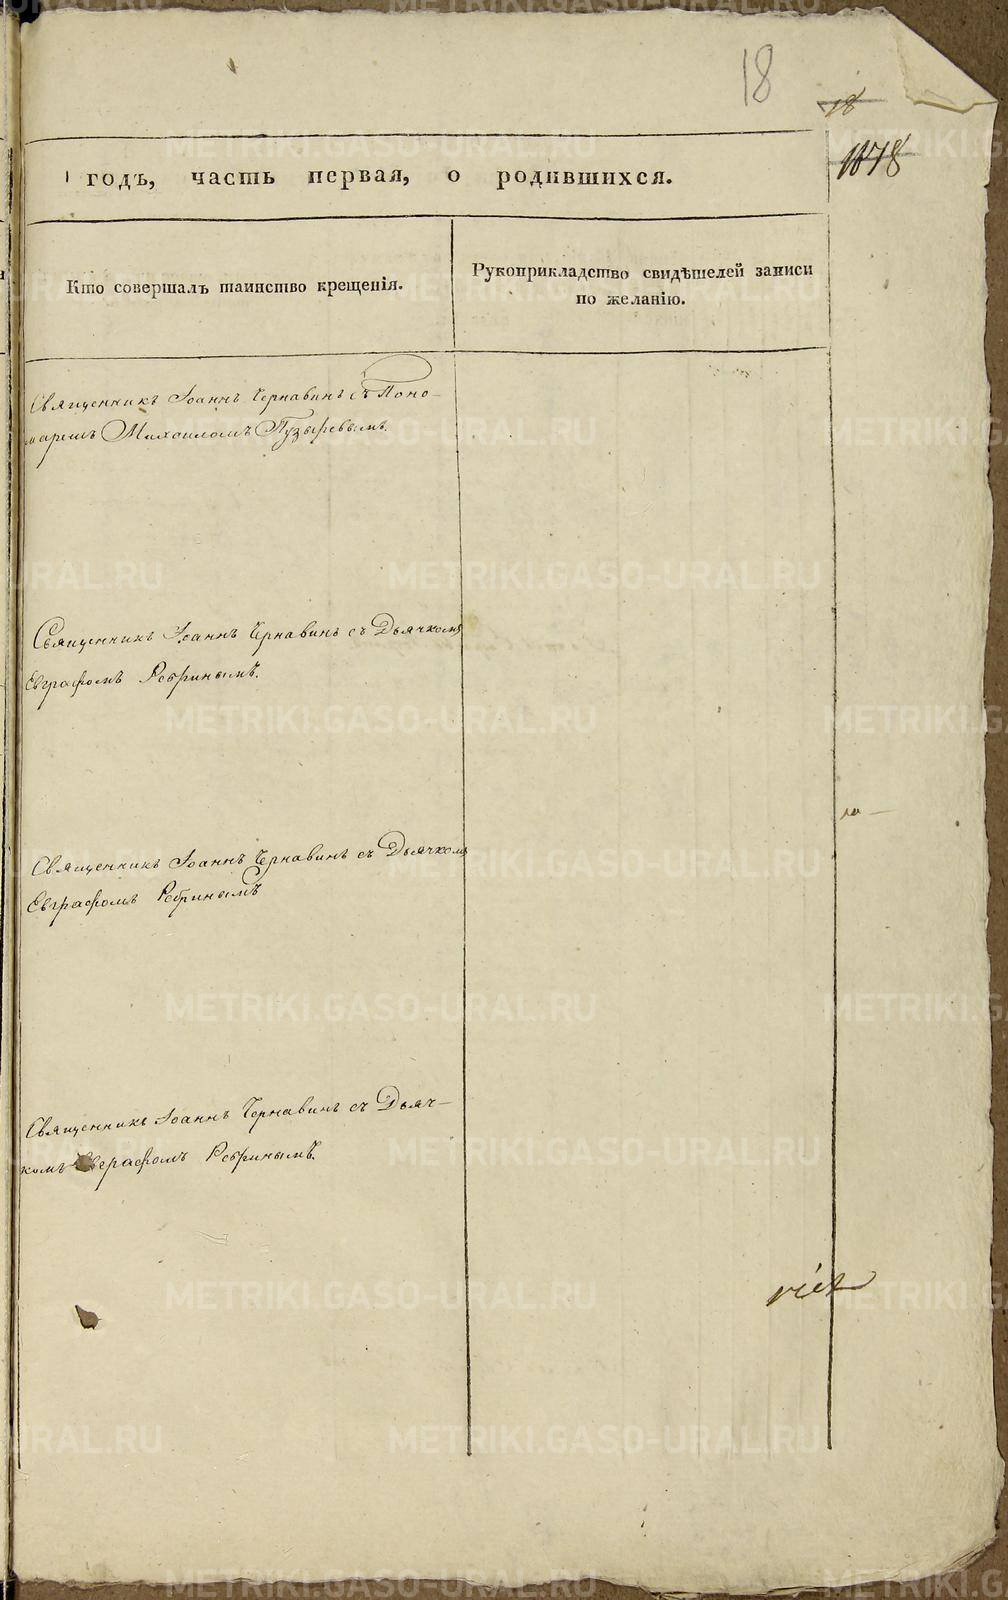 18
18
1878
годъ, часть первая, о родившихся.
Кто совершалъ таинство крещенія.
Рукоприкладство свидѣтелей записи
по желанію.
Священникъ Іоаннъ Чернавинъ съ Поно-
маремъ Михаиломъ Пузыревымъ.
Священникъ Іоаннъ Чернавинъ съ Дьячкомъ
Евграфомъ Ребринымъ.
Священникъ Іоаннъ Чернавинъ съ Дьячкомъ
Евграфомъ Ребринымъ
Священникъ Іоаннъ Чернавинъ съ Дьяч-
комъ Евграфомъ Ребринымъ.
METRIKI.GASO-URAL.RU